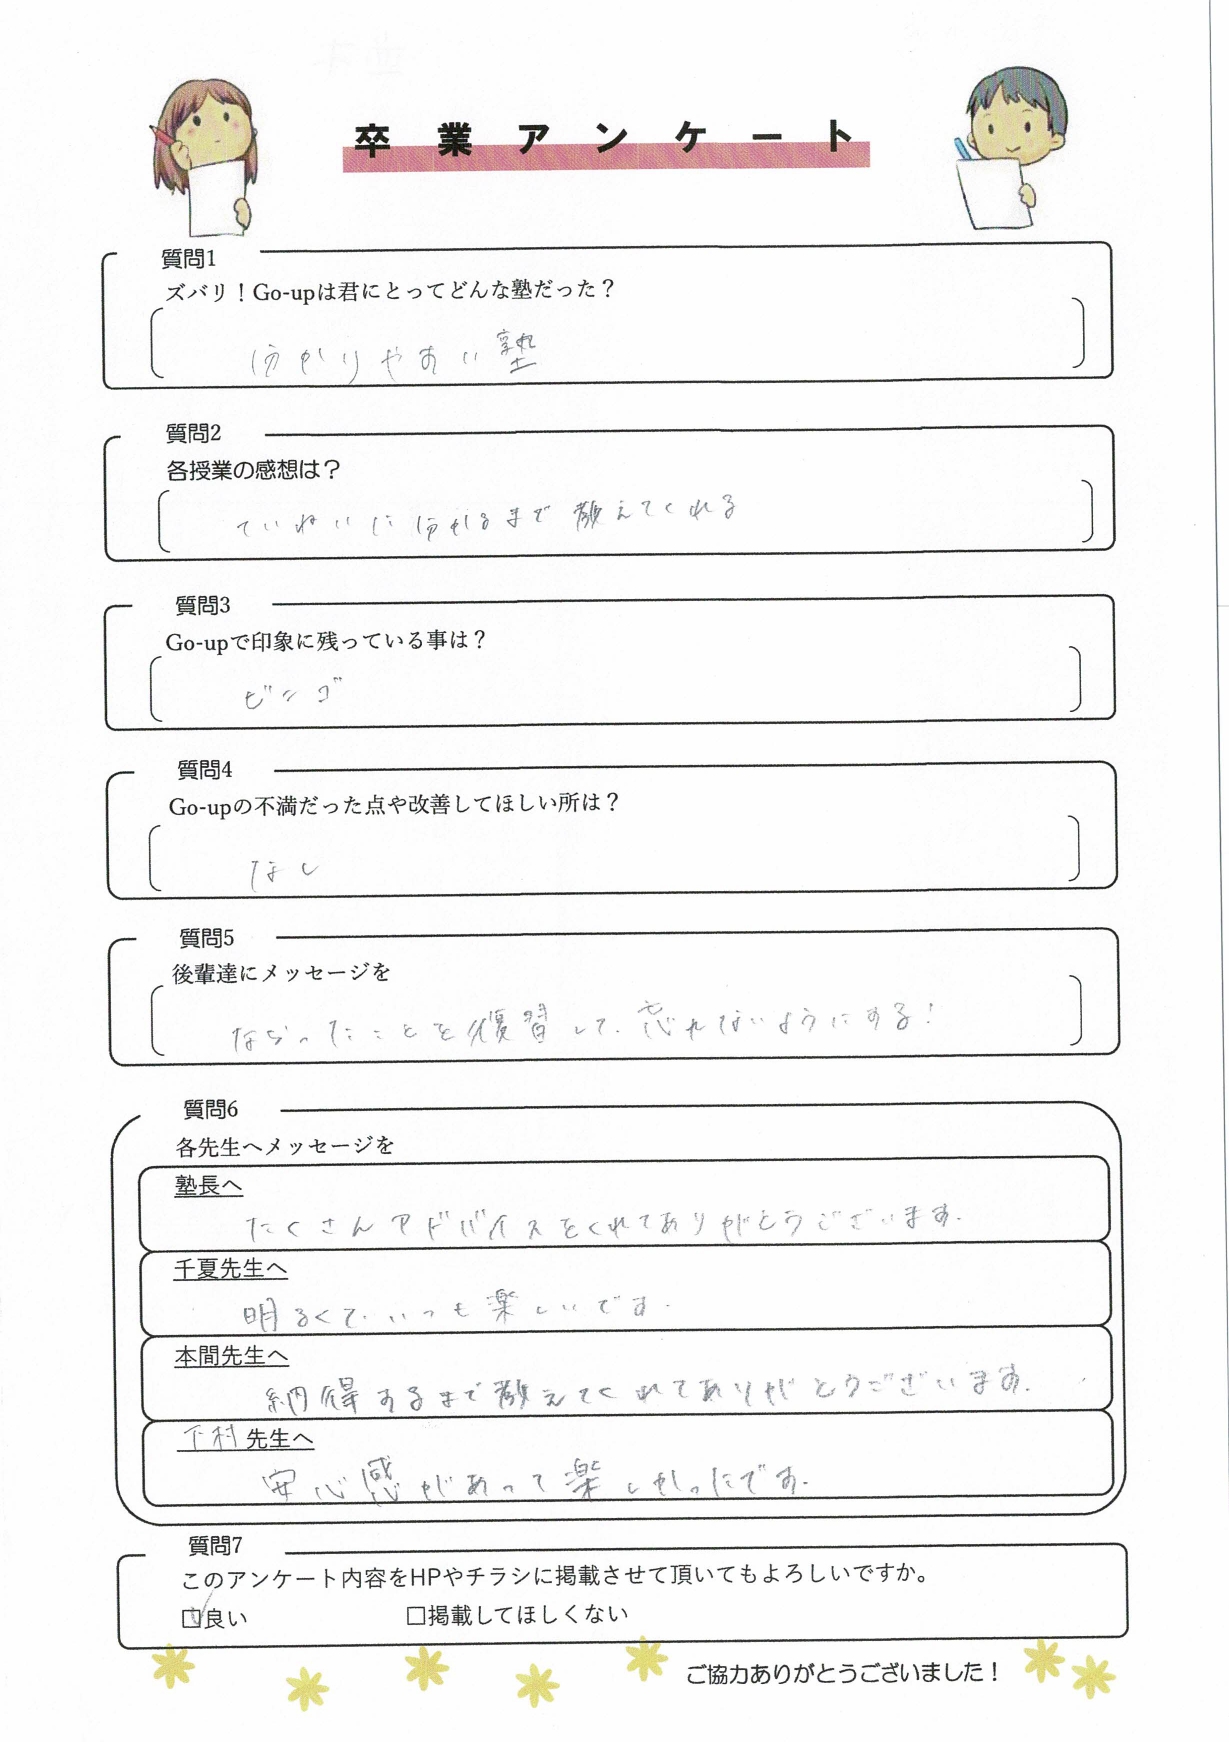 卒業アンケート
質問1
ズバリ！Go-upは君にとってどんな塾だった？
分かりやすい塾
質問2
各授業の感想は？
ていねいに分かるまで教えてくれる
質問3
Go-upで印象に残っている事は？
ビンゴ
質問4
Go-upの不満だった点や改善してほしい所は？
なし
質問5
後輩達にメッセージを
ならったことを復習して、忘れないようにする！
質問6
各先生へメッセージを
塾長へ
たくさんアドバイスをくれてありがとうございます。
千夏先生へ
明るくて、いつも楽しいです。
本間先生へ
納得するまで教えてくれてありがとうございます。
下村先生へ
安心感があって楽しかったです。
質問7
このアンケート内容をHPやチラシに掲載させて頂いてもよろしいですか。
☑良い　□掲載してほしくない
ご協力ありがとうございました！